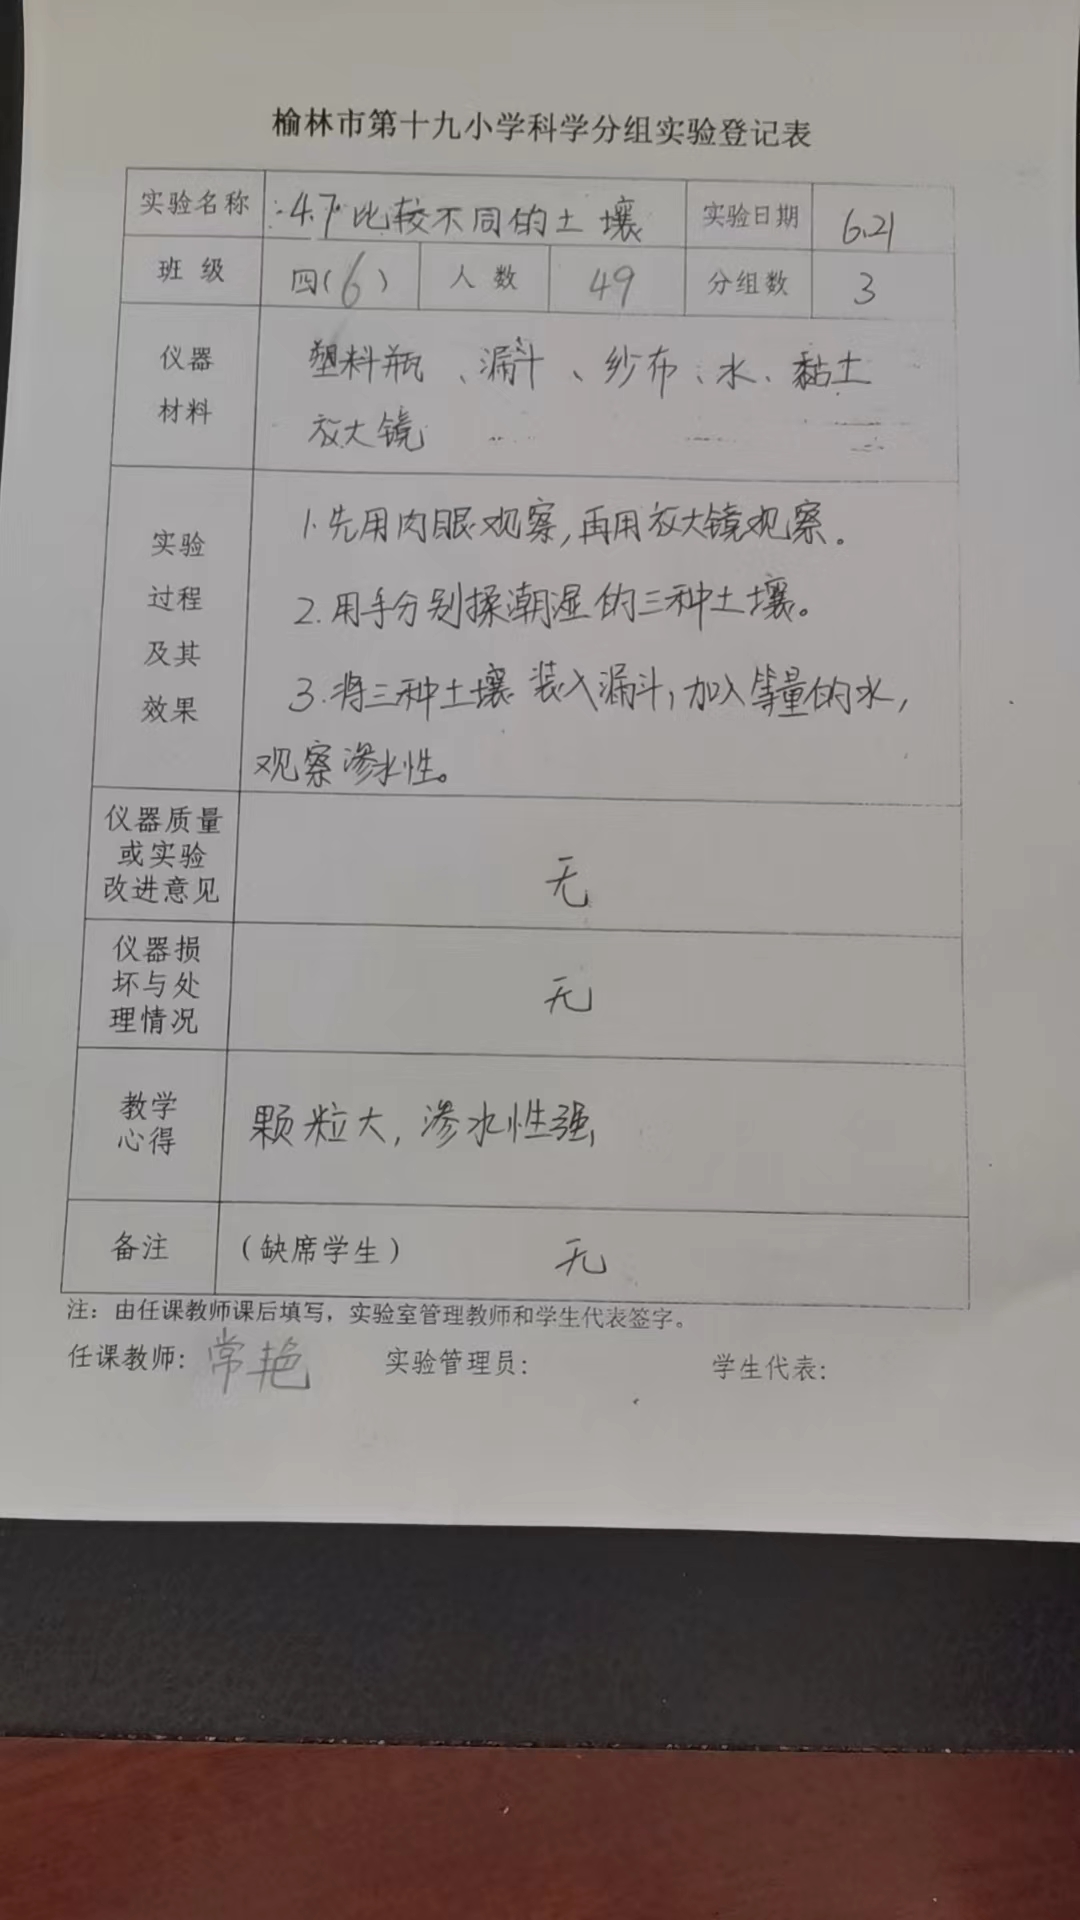 榆林市第十九小学科学分组实验登记表
实验名称 4.7 比较不同的土壤 实验日期 6.21
班级 四(6) 人数 49 分组数 3
仪器 塑料瓶、漏斗、纱布、水、黏土
材料 放大镜
实验 1.先用肉眼观察,再用放大镜观察。
过程 2.用手分别揉潮湿的三种土壤。
及其 3.将三种土壤装入漏斗,加入等量的水,
效果 观察渗水性。
仪器质量
或实验 无
改进意见
仪器损
坏与处 无
理情况
教学 颗粒大,渗水性强
心得
备注 (缺席学生) 无
注:由任课教师课后填写,实验室管理教师和学生代表签字。
任课教师:常艳 实验管理员: 学生代表: